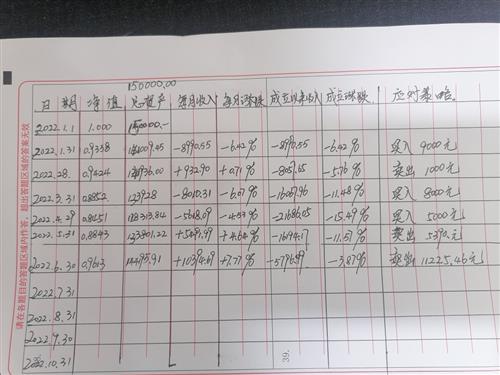 请在各题目的答题区域内作答，超出答题区域的答案无效
150000.00
日期 净值 总资产 每月收入 每月涨跌 成立以来收入 成立涨跌 应对策略。
2022.1.1 1.000 150000.-
2022.1.31 0.9338 -8990.55 -6.42% -8990.55 -6.42% 买入 9000元
2022.28. 0.9424 +932.90 +0.71% -8057.65 -5.76% 卖出 1000元
2022.3.31 0.8852 123928 -8010.31 -6.07% -16067.96 -11.48% 买入 8000元
2022.4.29 0.8451 118313.84 -5618.09 -4.53% -21686.05 -15.49% 买入 5000元
2022.5.31 0.8843 123801.22 +4.64% -16194.17 -11.57% 卖出 5390元
2022.6.30 0.9613 +10394.69 +7.77% -3.87% 卖出 11225.46元
2022.7.31
2022.8.31
2022.9.30
2022.10.31
39.